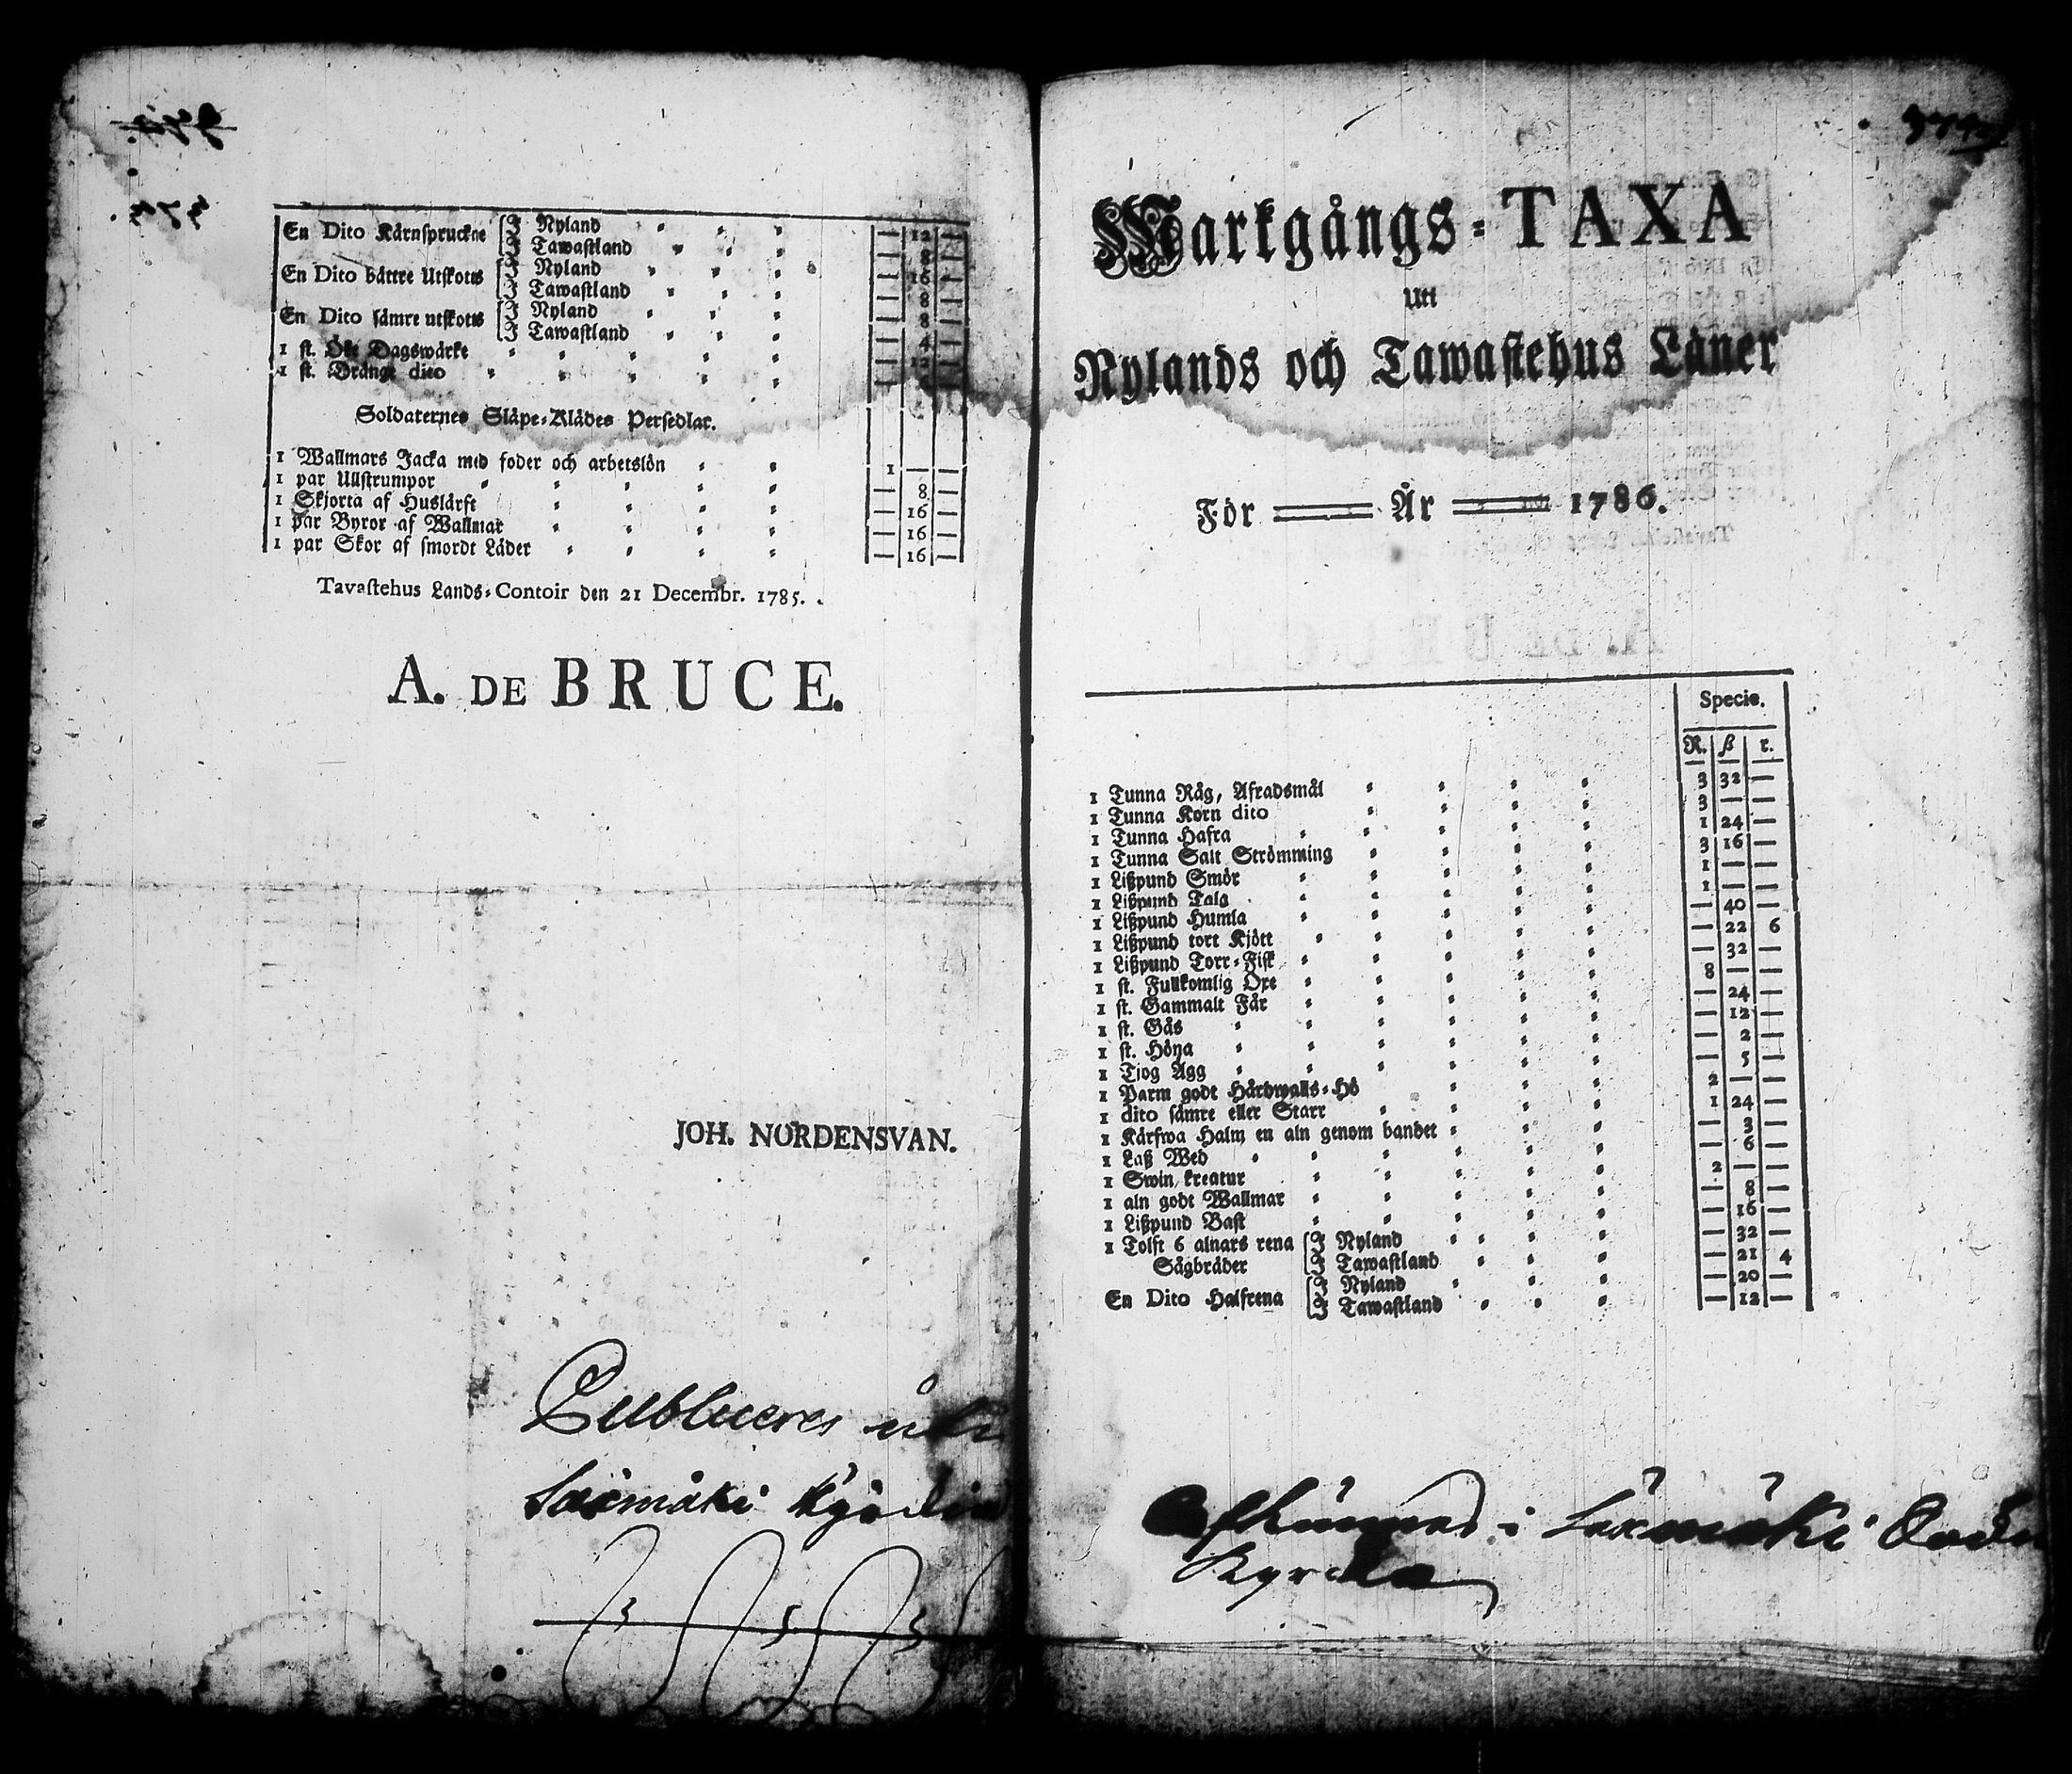 En Dito Kärnspruckne I Nyland — 12 —
I Tawastland — 8 —
En Dito bättre Utskotts I Nyland — 16 —
I Tawastland — 8 —
En Dito sämre utskotts I Nyland — 8 —
I Tawastland — 4 —
1 st. Öke Dagswärke — 12 —
1 st. Drängs dito
Soldaternes Släpe-Klädes Persedlar.
1 Wallmars Jacka med foder och arbetslön 1 — —
1 par Ullstrumpor — 8 —
1 Skjorta af Huslärft — 16 —
1 par Byxor af Wallmar — 16 —
1 par Skor af smordt Läder — 16 —
Tavastehus Lands-Contoir den 21 Decembr. 1785.
A. DE BRUCE.
JOH. NORDENSVAN.
Publiceres uti
Saxmäki
Markgångs-TAXA
Uti
Nylands och Tawastehus Läner
För År 1786.
Specie.
R. ß r.
1 Tunna Råg, Afradsmål 3 32 —
1 Tunna Korn dito 3 — —
1 Tunna Hafra 1 24 —
1 Tunna Salt Strömming 3 16 —
1 Lißpund Smör 1 — —
1 Lißpund Talg 1 — —
1 Lißpund Humla — 40 —
1 Lißpund tort Kjött — 22 6
1 Lißpund Torr-Fisk — 32 —
1 st. Fullkomlig Oxe 8 — —
1 st. Gammalt Får — 24 —
1 st. Gås — 12 —
1 st. Höna — 2 —
1 Tjog Ägg — 5 —
1 Parm godt Hårdwalls-Hö 2 — —
1 dito sämre eller Starr 1 24 —
1 Kärfwa Halm en aln genom bandet — 3 —
1 Laß Wed — 6 —
1 Swin kreatur 2 — —
1 aln godt Wallmar — 8 —
1 Lißpund Bast — 16 —
1 Tolft 6 alnars rena I Nyland — 32 —
Sågbräder I Tawastland — 21 4
En Dito Halfrena I Nyland — 20 —
I Tawastland — 12 —
i Saxmäki
Kyrcka